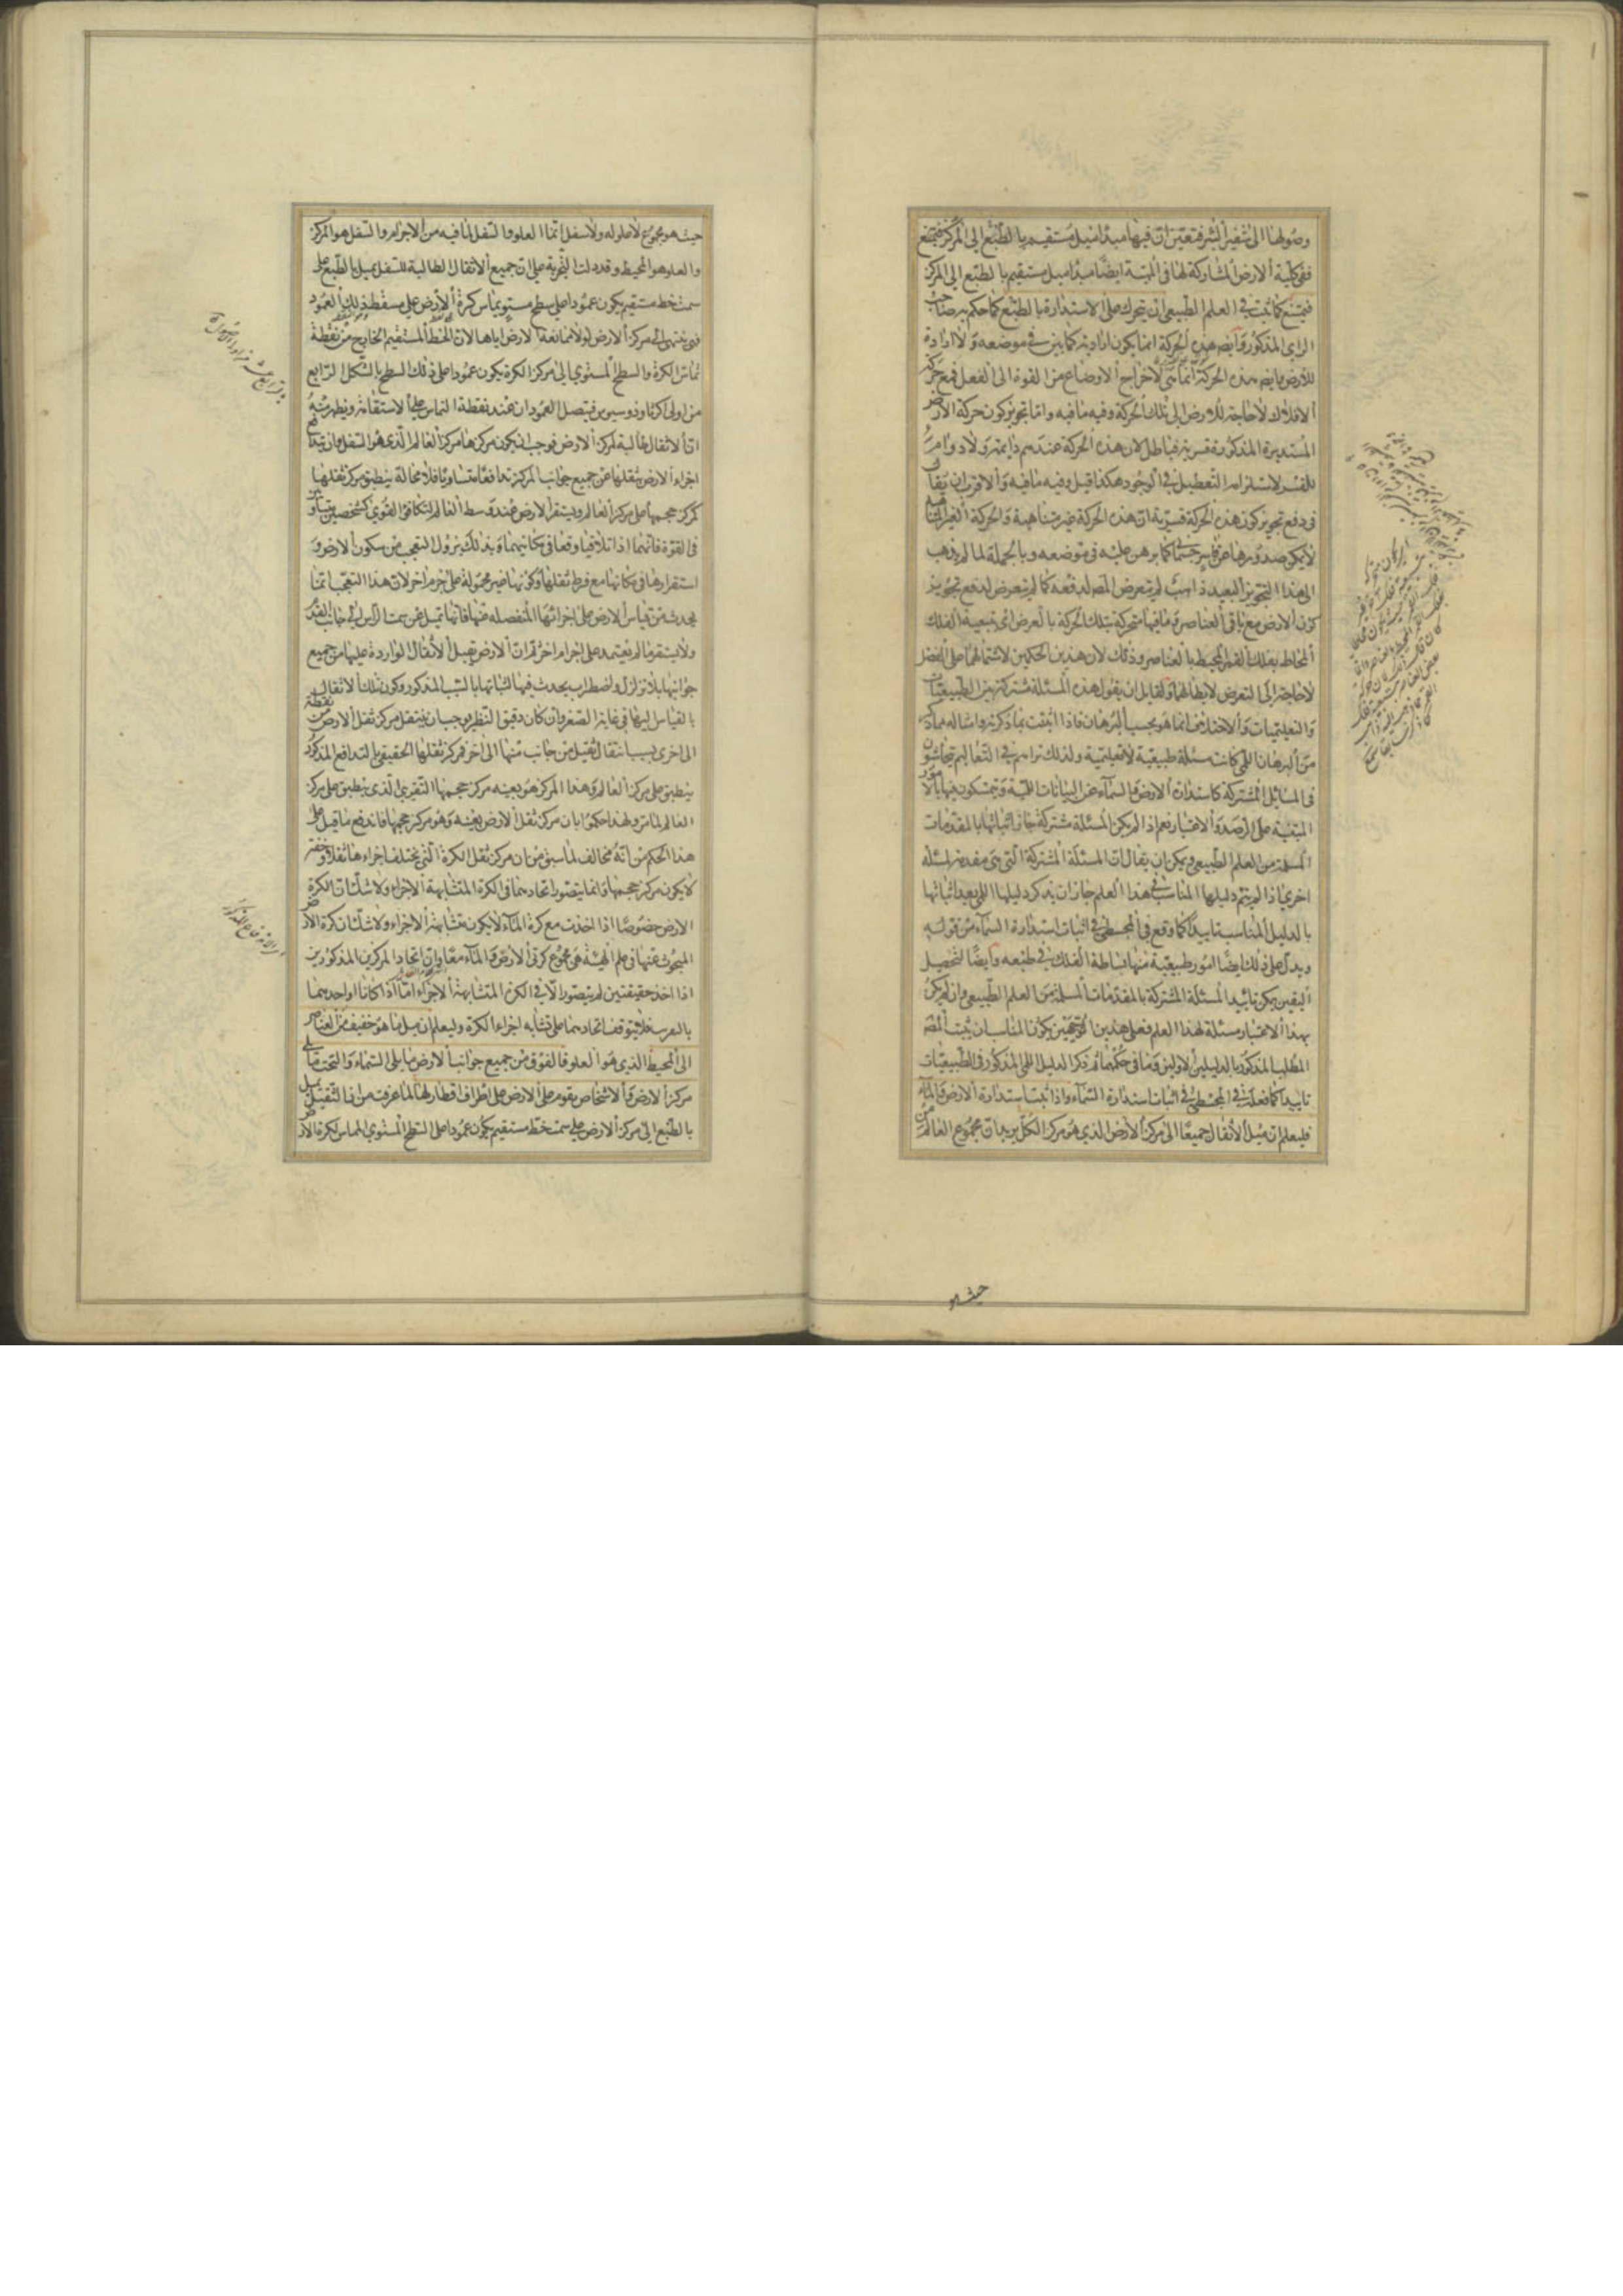 وصولها الى شفير البئر فتعين ان فيها مبدأ ميل مستقيم بالطبع الى المركز فيمتنع
ففى كلية الارض المشاركة لها فى المهية ايضا مبدأ ميل مستقيم بالطبع الى المركز
فيمتنع كما ثبت فى العلم الطبيعى ان يتحرك على الاستدارة بالطبع كما حكم به صاحب
الراى المذكور وايضا هذه الحركة انما يكون ارادية كما بين فى موضعه ولا ارادة
للارض هذه الحركة انما هى لاخراج الاوضاع من القوة الى الفعل فمع حركة
الافلاك لا حاجة للارض الى تلك الحركة وفيه ما فيه واما تجويز كون حركة الارض
المستديرة المذكورة قسرية فباطل لان هذه الحركة عندهم دايمة ولا دوام
للقسر لاستلزامه التعطيل فى الوجود هكذا قيل وفيه ما فيه والاقرب ان يقال
فى دفع تجويز كون هذه الحركة قسرية ان هذه الحركة غير متناهية والحركة الغير المتناهية
لا يمكن صدورها عن قاسر جسمانى كما برهن عليه فى موضعه وبالجملة لما لم يذهب
الى هذا التجويز البعيد ذاهب لم يتعرض المص لدفعه كما لم يتعرض لدفع تجويز
كون الارض مع باقى العناصر وما فيها متحركة بتلك الحركة بالعرض اى بتبعية الفلك
المحاط بفلك القمر المحيط بالعناصر وذلك لان هذين الحكمين لاشتمالهما على الفضل
لا حاجة الى التعرض لابطالهما ولقايل ان يقول هذه المسئلة مشتركة بين الطبيعيات
والتعليميات والاختلاف انما هو بحسب البرهان فاذا اثبتت بما ذكره وامثاله
من البرهان اللمى كانت مسئلة طبيعية لا تعليمية ولذلك تراهم فى التعاليم يتحاشون
فى المسائل المشتركة كاستدارة الارض والسماء عن البيانات اللمية ويتمسكون فيها بالامور
المبتنية على الرصد والاعتبار نعم اذا لم يكن المسئلة مشتركة جاز اثباتها بالمقدمات
المسلمة من العلم الطبيعى ويمكن ان يقال ان المسئلة المشتركة التى هى مقدمة لمسئلة
اخرى اذا لم يتم دليلها المناسب فى هذا العلم جاز ان يذكر دليلها اللمى بعد اثباتها
بالدليل المناسب تاييدا كما وقع فى المجسطى فى اثبات استدارة السماء من قوله
ويدل على ذلك ايضا امور طبيعية منها بساطة الفلك فى طبعه وايضا لتحصيل
اليقين يمكن تاييد المسئلة المشتركة بالمقدمات المسلمة من العلم الطبيعى وان لم يكن
بهذا الاعتبار مسئلة لهذا العلم فعلى هذين الوجهين يكون المناسب ان يثبت المص
المطلب المذكور بالدليلين الاولين وما فى حكمهما ثم ذكر الدليل اللمى المذكور فى الطبيعيات
تاييدا كما فعله فى المجسطى فى اثبات استدارة السماء واذا ثبت استدارة الارض والماء
فليعلم ان ميل الاثقال جميعا الى مركز الارض الذى هو مركز الكل يريد ان مجموع العالم من
حيث هو
حيث هو مجموع لا علو له ولا سفل انما العلو والسفل لما فيه من الاجرام والسفل هو المركز
والعلو هو المحيط وقد دلت التجربة على ان جميع الاثقال الطالبة للسفل يميل بالطبع على
سمت خط مستقيم يكون عمودا على سطح مستو يماس كرة الارض على مسقط ذلك العمود
فهى ينتهى الى مركز الارض لولا ممانعة الارض اياها لان الخط المستقيم الخارج من نقطة
تماس الكرة والسطح المستوى الى مركز الكرة يكون عمودا على ذلك السطح بالشكل الرابع
من اولى اكر ثاوذوسيوس فيتصل العمودان عند نقطة التماس على الاستقامة ويظهر منه
ان الاثقال طالبة لمركز الارض فوجب ان يكون مركزها مركز العالم الذى هو السفل وان يتدافع
اجزاء الارض بثقلها من جميع جوانب المركز تدافعا متساويا فلا محالة ينطبق مركز ثقلها
كمركز حجمها على مركز العالم ويستقر الارض عند وسط العالم لتكافؤ القوى كشخصين يتساويان
فى القوة فانهما اذا تلاقيا وقفا فى مكانيهما وبذلك يزول التعجب من سكون الارض و
استقرارها فى مكانها مع فرط ثقلها وكونها غير محمولة على جرم اخر لان هذا التعجب انما
يحدث من قياس الارض على اجزائها المنفصلة منها فانها تميل عن سمت الرأس الى جانب القدم
ولا يستقر ما لم يعتمد على اجرام اخر ثم ان الارض تقبل الاثقال الواردة عليها من جميع
جوانبها بلا تزلزل واضطراب يحدث فيها لثباتها بالسبب المذكور وكون تلك الاثقال
بالقياس اليها فى غاية الصغر وان كان دقيق النظر يوجب ان ينتقل مركز ثقل الارض من نقطة
الى اخرى بسبب انتقال ثقيل من جانب منها الى اخر فمركز ثقلها الحقيقى بالتدافع المذكور
ينطبق على مركز العالم وهذا المركز هو بعينه مركز حجمها التقريبى الذى ينطبق على مركز
العالم لما مر ولهذا حكموا بان مركز ثقل الارض بعينه وهو مركز حجمها فاندفع ما قيل على
هذا الحكم من انه مخالف لما سبق من ان مركز ثقل الكرة التى يختلف اجزاءها ثقلا وخفة
لا يكون مركز حجمها وانما يتصور اتحادهما فى الكرة المتشابهة الاجزاء ولا شك ان الكرة
الارض خصوصا اذا اخذت مع كرة الماء لا يكون متشابهة الاجزاء ولا شك ان كرة الارض
المبحوث عنها فى علم الهيئة هى مجموع كرتى الارض والماء معا وان اتحاد المركزين المذكورين
اذا اخذ حقيقتين لم يتصور الا فى الكرة المتشابهة الاجزاء اما اذا كانا او احدهما
بالتقريب فلا يتوقف اتحادهما على تشابه اجزاء الكرة وليعلم ان ميل ما هو خفيف من العناصر
الى المحيط الذى هو العلو فالفوق من جميع جوانب الارض ما يلى السماء والتحت ما يلى
مركز الارض والاشخاص يقوم على الارض على اطراف اقطارها لما عرفت من ان الثقيل يميل
بالطبع الى مركز الارض على سمت خط مستقيم يكون عمودا على السطح المستوى المماس لكرة الارض